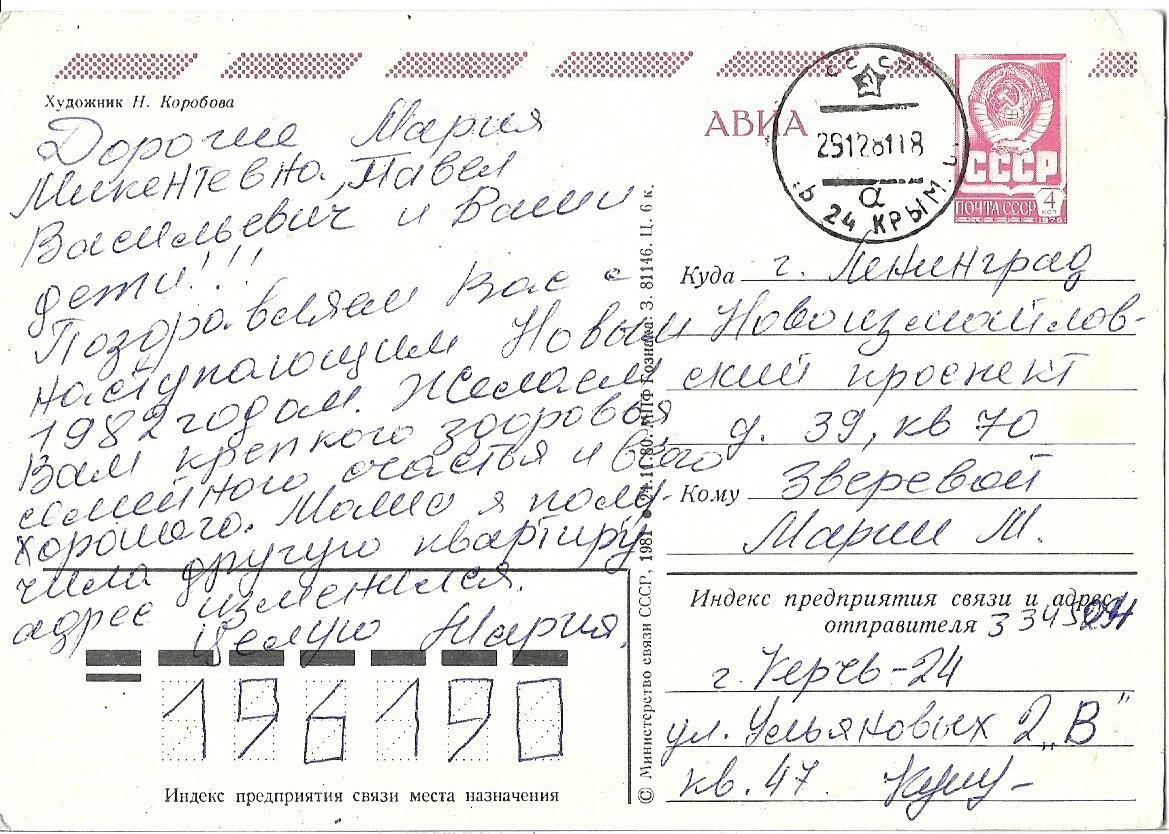 Художник Н. Коробова
Дорогие Мария
Микентевна, Павел
Васильевич и Ваши
дети!!!
Поздоравляем Вас с
наступающим Новым
1982 годом. Желаем
Вам крепкого здоровья
семейного счастья и всего
хорошого. Маша я полу-
чила другую квартиру
адрес изменился.
Целую Мария.
196190
Индекс предприятия связи места назначения
© Министерство связи СССР, 1981 ● 24.11.80. МПФ Гознака. З. 81146. Ц. 6 к.
АВИА
СССР
29128118
α
24 КРЫМ.
СССР
ПОЧТА СССР 4 коп
1976
Куда г. Ленинград
Новоизмайлов-
ский проспект
д. 39, кв 70
Кому Зверевой
Марии М.
Индекс предприятия связи и адрес
отправителя
г. Керчь-24
ул. Ульяновых 2 „В"
кв. 47.